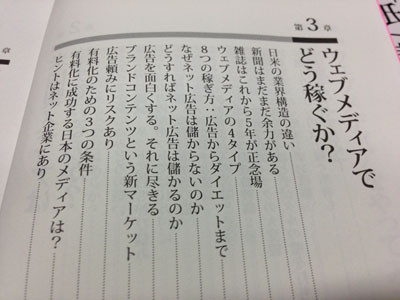 第3章
ウェブメディアで
どう稼ぐか？
日米の業界構造の違い
新聞はまだまだ余力がある
雑誌はこれから5年が正念場
ウェブメディアの4タイプ
8つの稼ぎ方：広告からダイエットまで
なぜネット広告は儲からないのか
どうすればネット広告は儲かるのか
広告を面白くする。それに尽きる
ブランドコンテンツという新マーケット
広告頼みにリスクあり
有料化のための3つの条件
有料化に成功する日本のメディアは？
ヒントはネット企業にあり
章